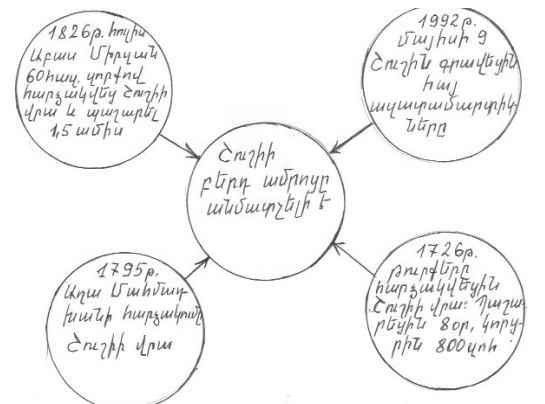 1826թ. հուլիս
Աբաս Միրզան
60հազ. զորքով
հարձակվեց Շուշիի
վրա և պաշարել
1,5 ամիս
1992թ.
Մայիսի 9
Շուշին գրավեցին
հայ
ազատամարտիկ-
ները
Շուշիի
բերդ ամրոցը
անմատչելի է
1795թ.
Աղա Մահմադ
խանի հարձակումը
Շուշիի վրա
1726թ.
թուրքերը
հարձակվեցին
Շուշիի վրա: Պաշա-
րեցին 8օր, կորց-
րին 800զոհ